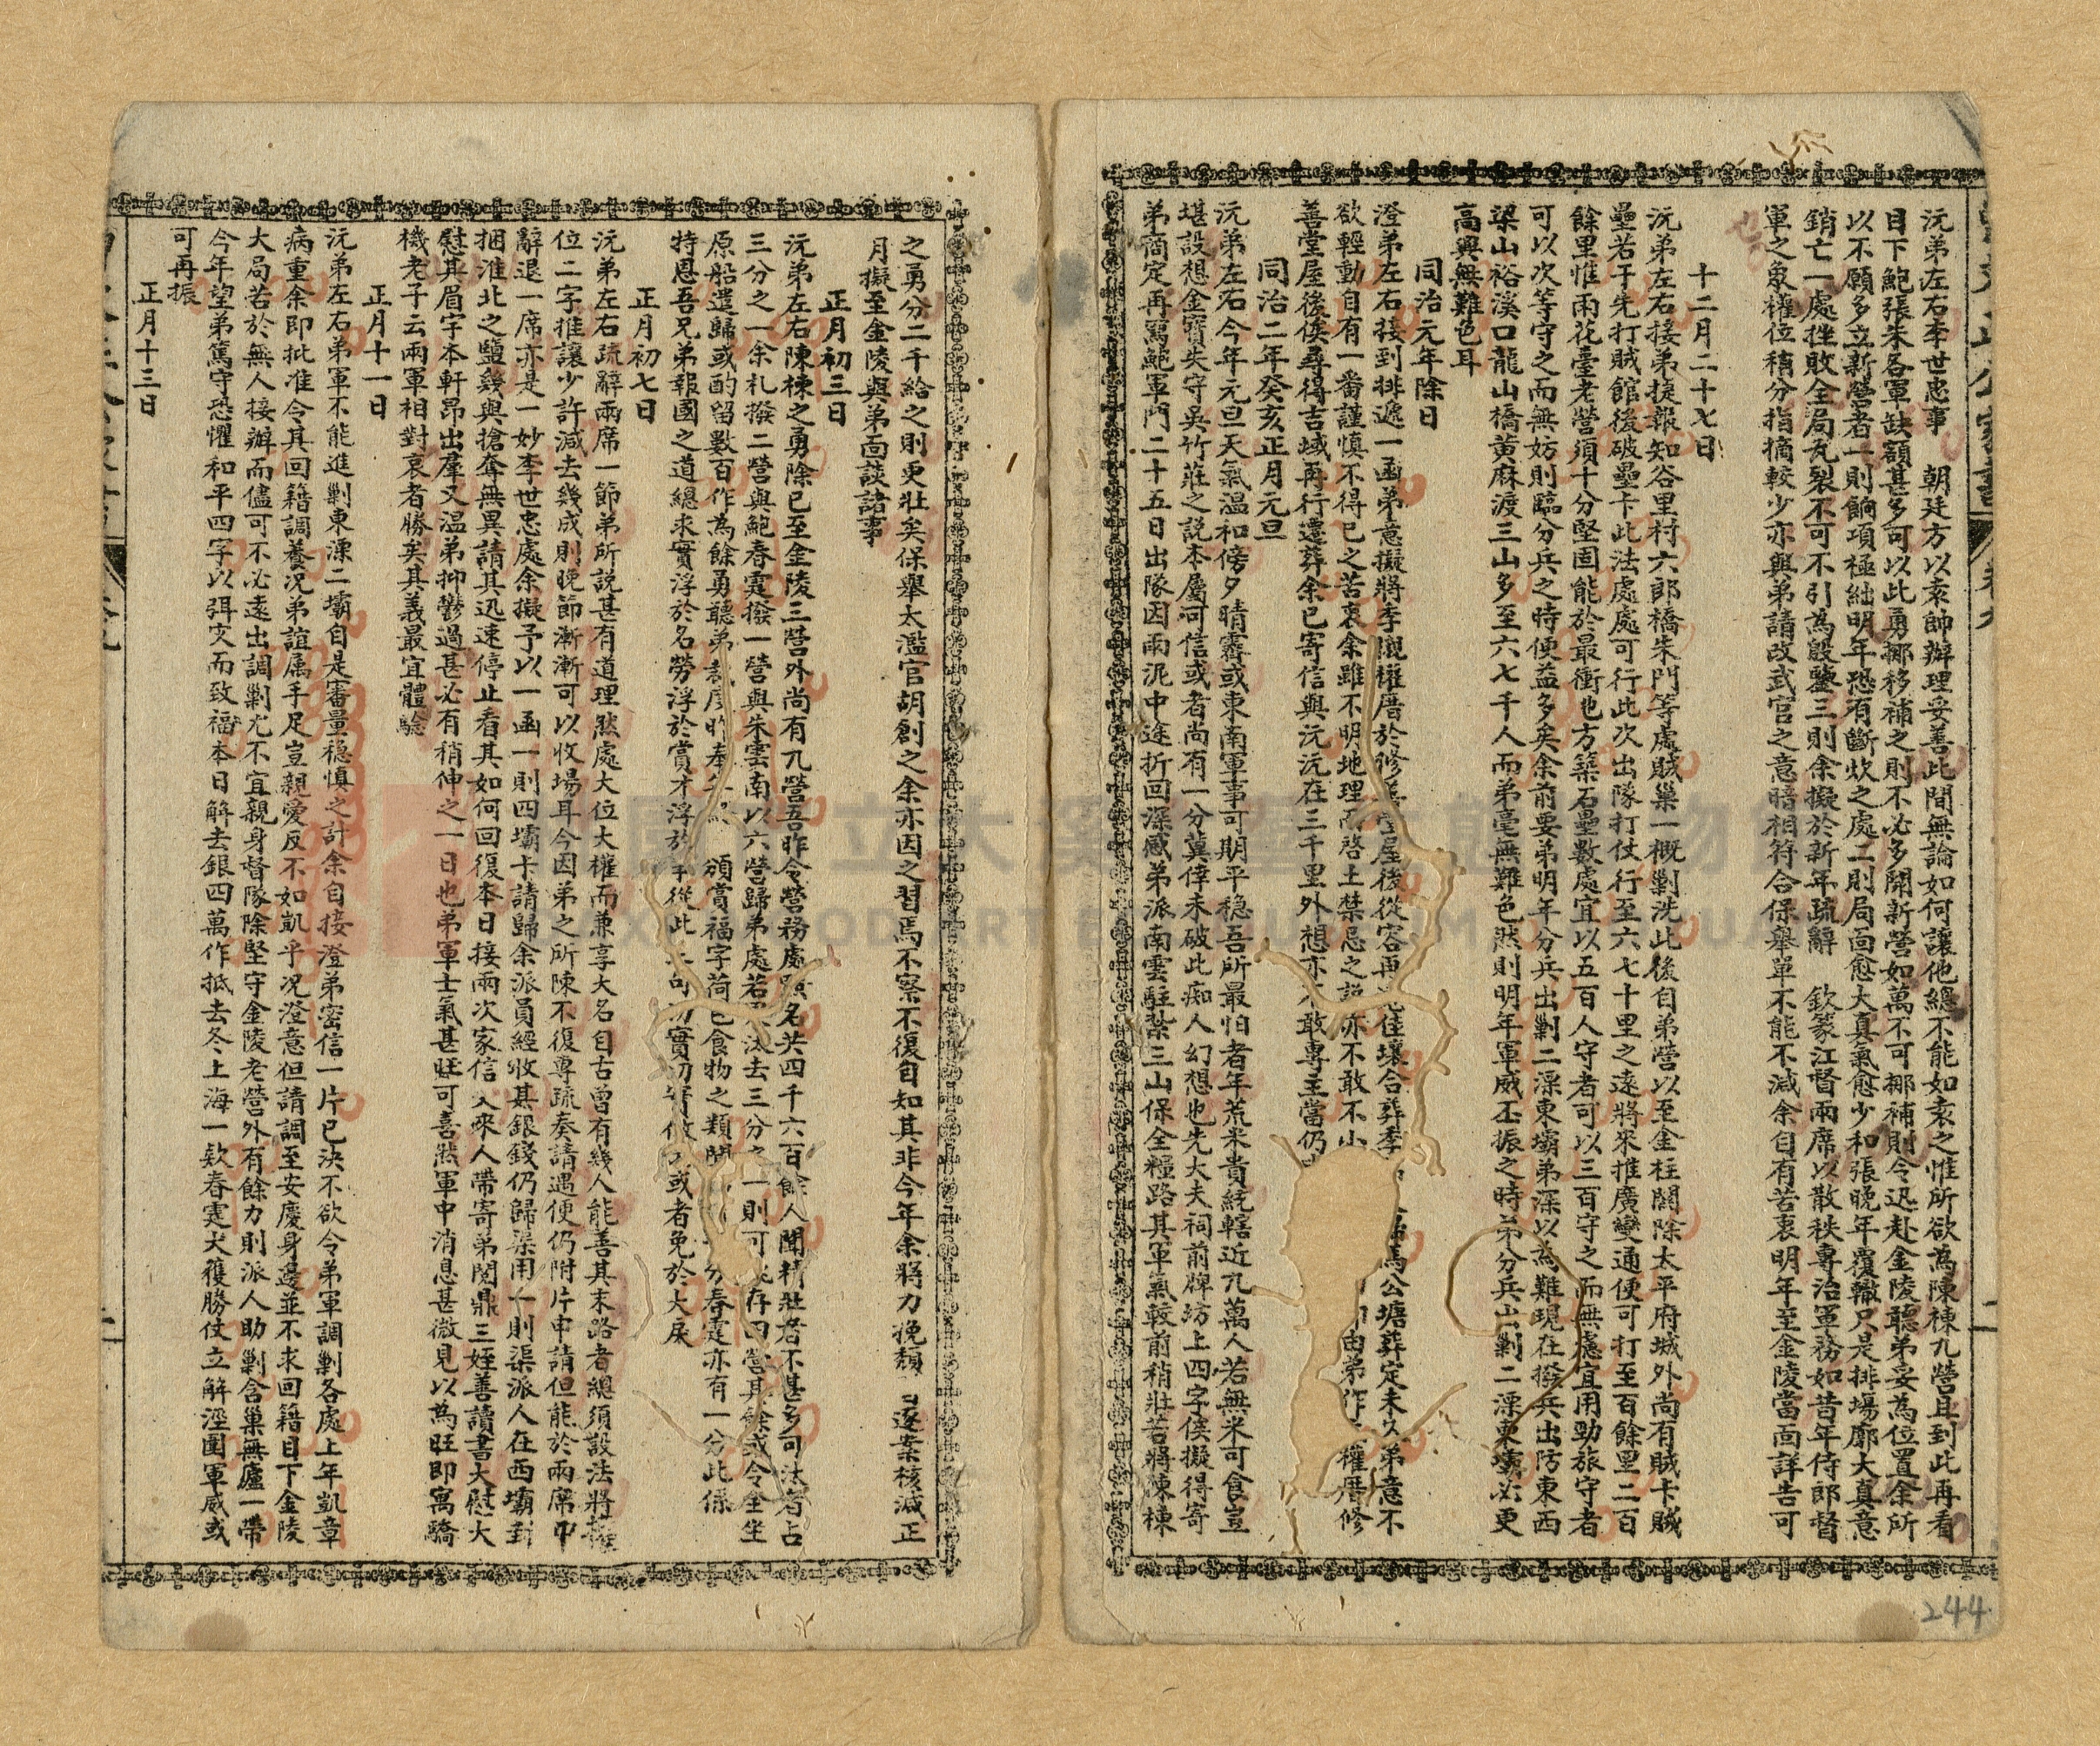 沅弟左右李世忠事　朝廷方以袁帥辦理妥善此間無論如何讓他總不能如袁之惟所欲為陳棟九營且到此再看
目下鮑張朱各軍缺額甚多可以此勇挪移補之則不必多開新營如萬不可挪補則令迅赴金陵聽弟妥為位置余所
以不願多立新營者一則餉項極絀明年恐有斷炊之處二則局面愈大真氣愈少和張晚年覆轍只是排場廓大真意
銷亡一處挫敗全局瓦裂不可不引為殷鑒三則余擬於新年疏辭　欽篆江督兩席以散秩專治軍務如昔年侍郎督
軍之象權位稍分指摘較少亦與弟請改武官之意暗相符合保舉單不能不減余自有苦衷明年至金陵當面詳告可
也
十二月二十七日
沅弟左右接弟捷報知谷里村六郎橋朱門等處賊巢一概剿洗此後自弟營以至金柱關除太平府城外尚有賊卡賊
壘若干先打賊館後破壘卡此法處處可行此次出隊打仗行至六七十里之遠將來推廣變通便可打至百餘里二百
餘里惟雨花臺老營須十分堅固能於最衝也方築石壘數處宜以五百人守者可以三百守之而無慮宜用勁旅守者
可以次等守之而無妨則臨分兵之時便益多矣余前要弟明年分兵出剿二溧東壩弟深以為難現在撥兵出防東西
梁山裕溪口龍山橋黃麻渡三山多至六七千人而弟毫無難色然則明年軍威丕振之時弟分兵出剿二溧東壩必更
高興無難色耳
同治元年除日
澄弟左右接到排遞一函弟意擬將李觀權厝於修善堂屋後從容再佳壤合葬李馬公塘葬定未久弟意不
欲輕動自有一番謹慎不得已之苦衷余雖不明地理而啓土禁忌之說亦不敢不小由弟作權厝修
善堂屋後俟尋得吉域再行遷葬余已寄信與沅沅在三千里外想亦不敢專主當仍
同治二年癸亥正月元旦
沅弟左右今年元旦天氣溫和傍夕晴霽或東南軍事可期平穩吾所最怕者年荒米貴統轄近九萬人若無米可食豈
堪設想金寶失守吳竹莊之說本屬可信或者尚有一分冀倖未破此痴人幻想也先大夫祠前牌坊上四字俟擬得寄
弟商定再罵鮑軍門二十五日出隊因雨泥中途折回深感弟派南雲駐紮三山保全糧路其軍氣較前稍壯若將陳棟
之勇分二千給之則更壯矣保舉太濫官胡創之余亦因之習焉不察不復自知其非今年余將力挽頹逐案核減正
月擬至金陵與弟面談諸事
正月初三日
沅弟左右陳棟之勇除已至金陵三營外尚有九營吾昨令營務處點名共四千六百餘人聞精壯者不甚多可汰者占
三分之一余札撥二營與鮑春霆撥一營與朱雲南以六營歸弟處若汰去三分之一則可存四營其餘或令全坐
原船遣歸或酌留數百作為餘勇聽弟裁度昨奉　頒賞福字荷包食物之類聞分春霆亦有一分此係
特恩吾兄弟報國之道總求實浮於名勞浮於賞才浮於事從此三句切實做去或者免於大戾
正月初七日
沅弟左右疏辭兩席一節弟所說甚有道理然處大位大權而兼享大名自古曾有幾人能善其末路者總須設法將權
位二字推讓少許減去幾成則晚節漸漸可以收場耳今因弟之所陳不復專疏奏請遇便仍附片申請但能於兩席中
辭退一席亦是一妙李世忠處余擬予以一函一則四壩卡請歸余派員經收其銀錢仍歸渠用一則渠派人在西壩封
捆淮北之鹽幾與搶奪無異請其迅速停止看其如何回復本日接兩次家信又來人帶寄弟閱鼎三姪善讀書大慰大
慰其眉宇本軒昂出羣又溫弟抑鬱過甚必有稍伸之一日也弟軍士氣甚旺可喜然軍中消息甚微見以為旺即寓驕
機老子云兩軍相對哀者勝矣其義最宜體驗
正月十一日
沅弟左右弟軍不能進剿東溧二壩自是審量穩慎之計余自接澄弟密信一片已決不欲令弟軍調剿各處上年凱章
病重余即批准令其回籍調養况弟誼属手足豈親愛反不如凱乎况澄意但請調至安慶身邊並不求回籍目下金陵
大局若於無人接辦而儘可不必遠出調剿尤不宜親身督隊除堅守金陵老營外有餘力則派人助剿含巢無廬一帶
今年望弟篤守恐懼和平四字以弭灾而致福本日解去銀四萬作抵去冬上海一欵春霆大獲勝仗立解涇圍軍威或
可再振
正月十三日
244